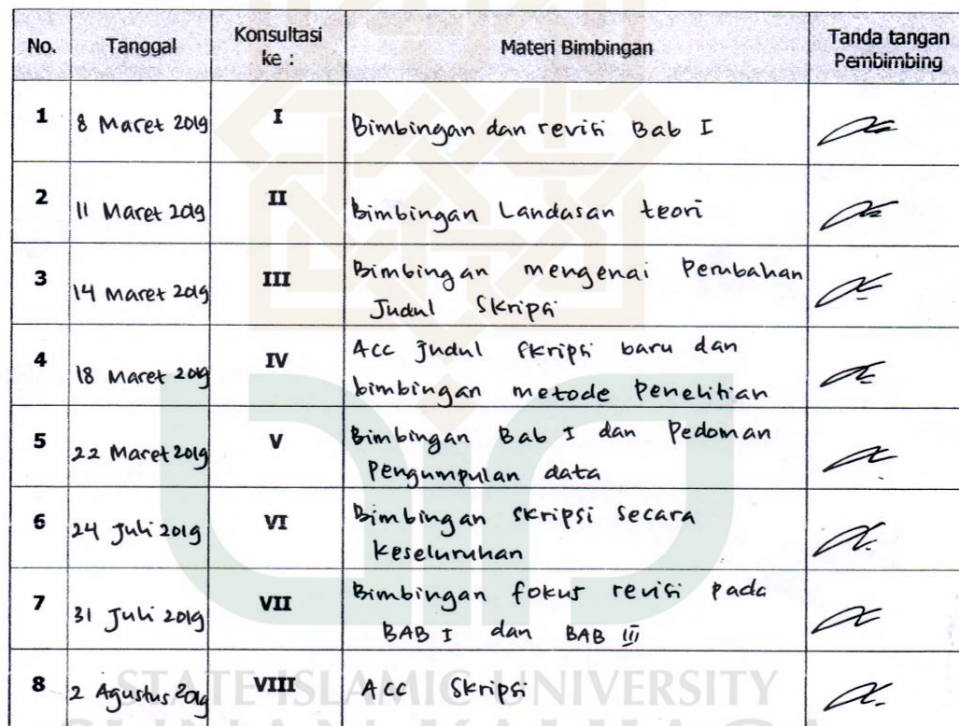 No. Tanggal Konsultasi ke : Materi Bimbingan Tanda tangan Pembimbing
1 8 Maret 2019 I Bimbingan dan revisi Bab I
2 11 Maret 2019 II Bimbingan Landasan teori
3 14 Maret 2019 III Bimbingan mengenai Perubahan
Judul Skripsi
4 18 Maret 2019 IV Acc Judul skripsi baru dan
bimbingan metode Penelitian
5 22 Maret 2019 V Bimbingan Bab I dan Pedoman
Pengumpulan data
6 24 Juli 2019 VI Bimbingan skripsi secara
keseluruhan
7 31 Juli 2019 VII Bimbingan fokus revisi pada
BAB I dan BAB III
8 2 Agustus 2019 VIII Acc Skripsi
STATE ISLAMIC UNIVERSITY
SUNAN KALIJAGA